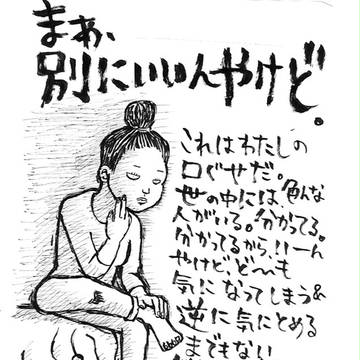 まぁ、
別にいいんやけど。
これはわたしの
口ぐせだ。
世の中には、色んな
人がいてる。分かってる。
分かってるから、いーん
やけど、ど〜も
気になってしまう&
逆に気にとめる
までもない